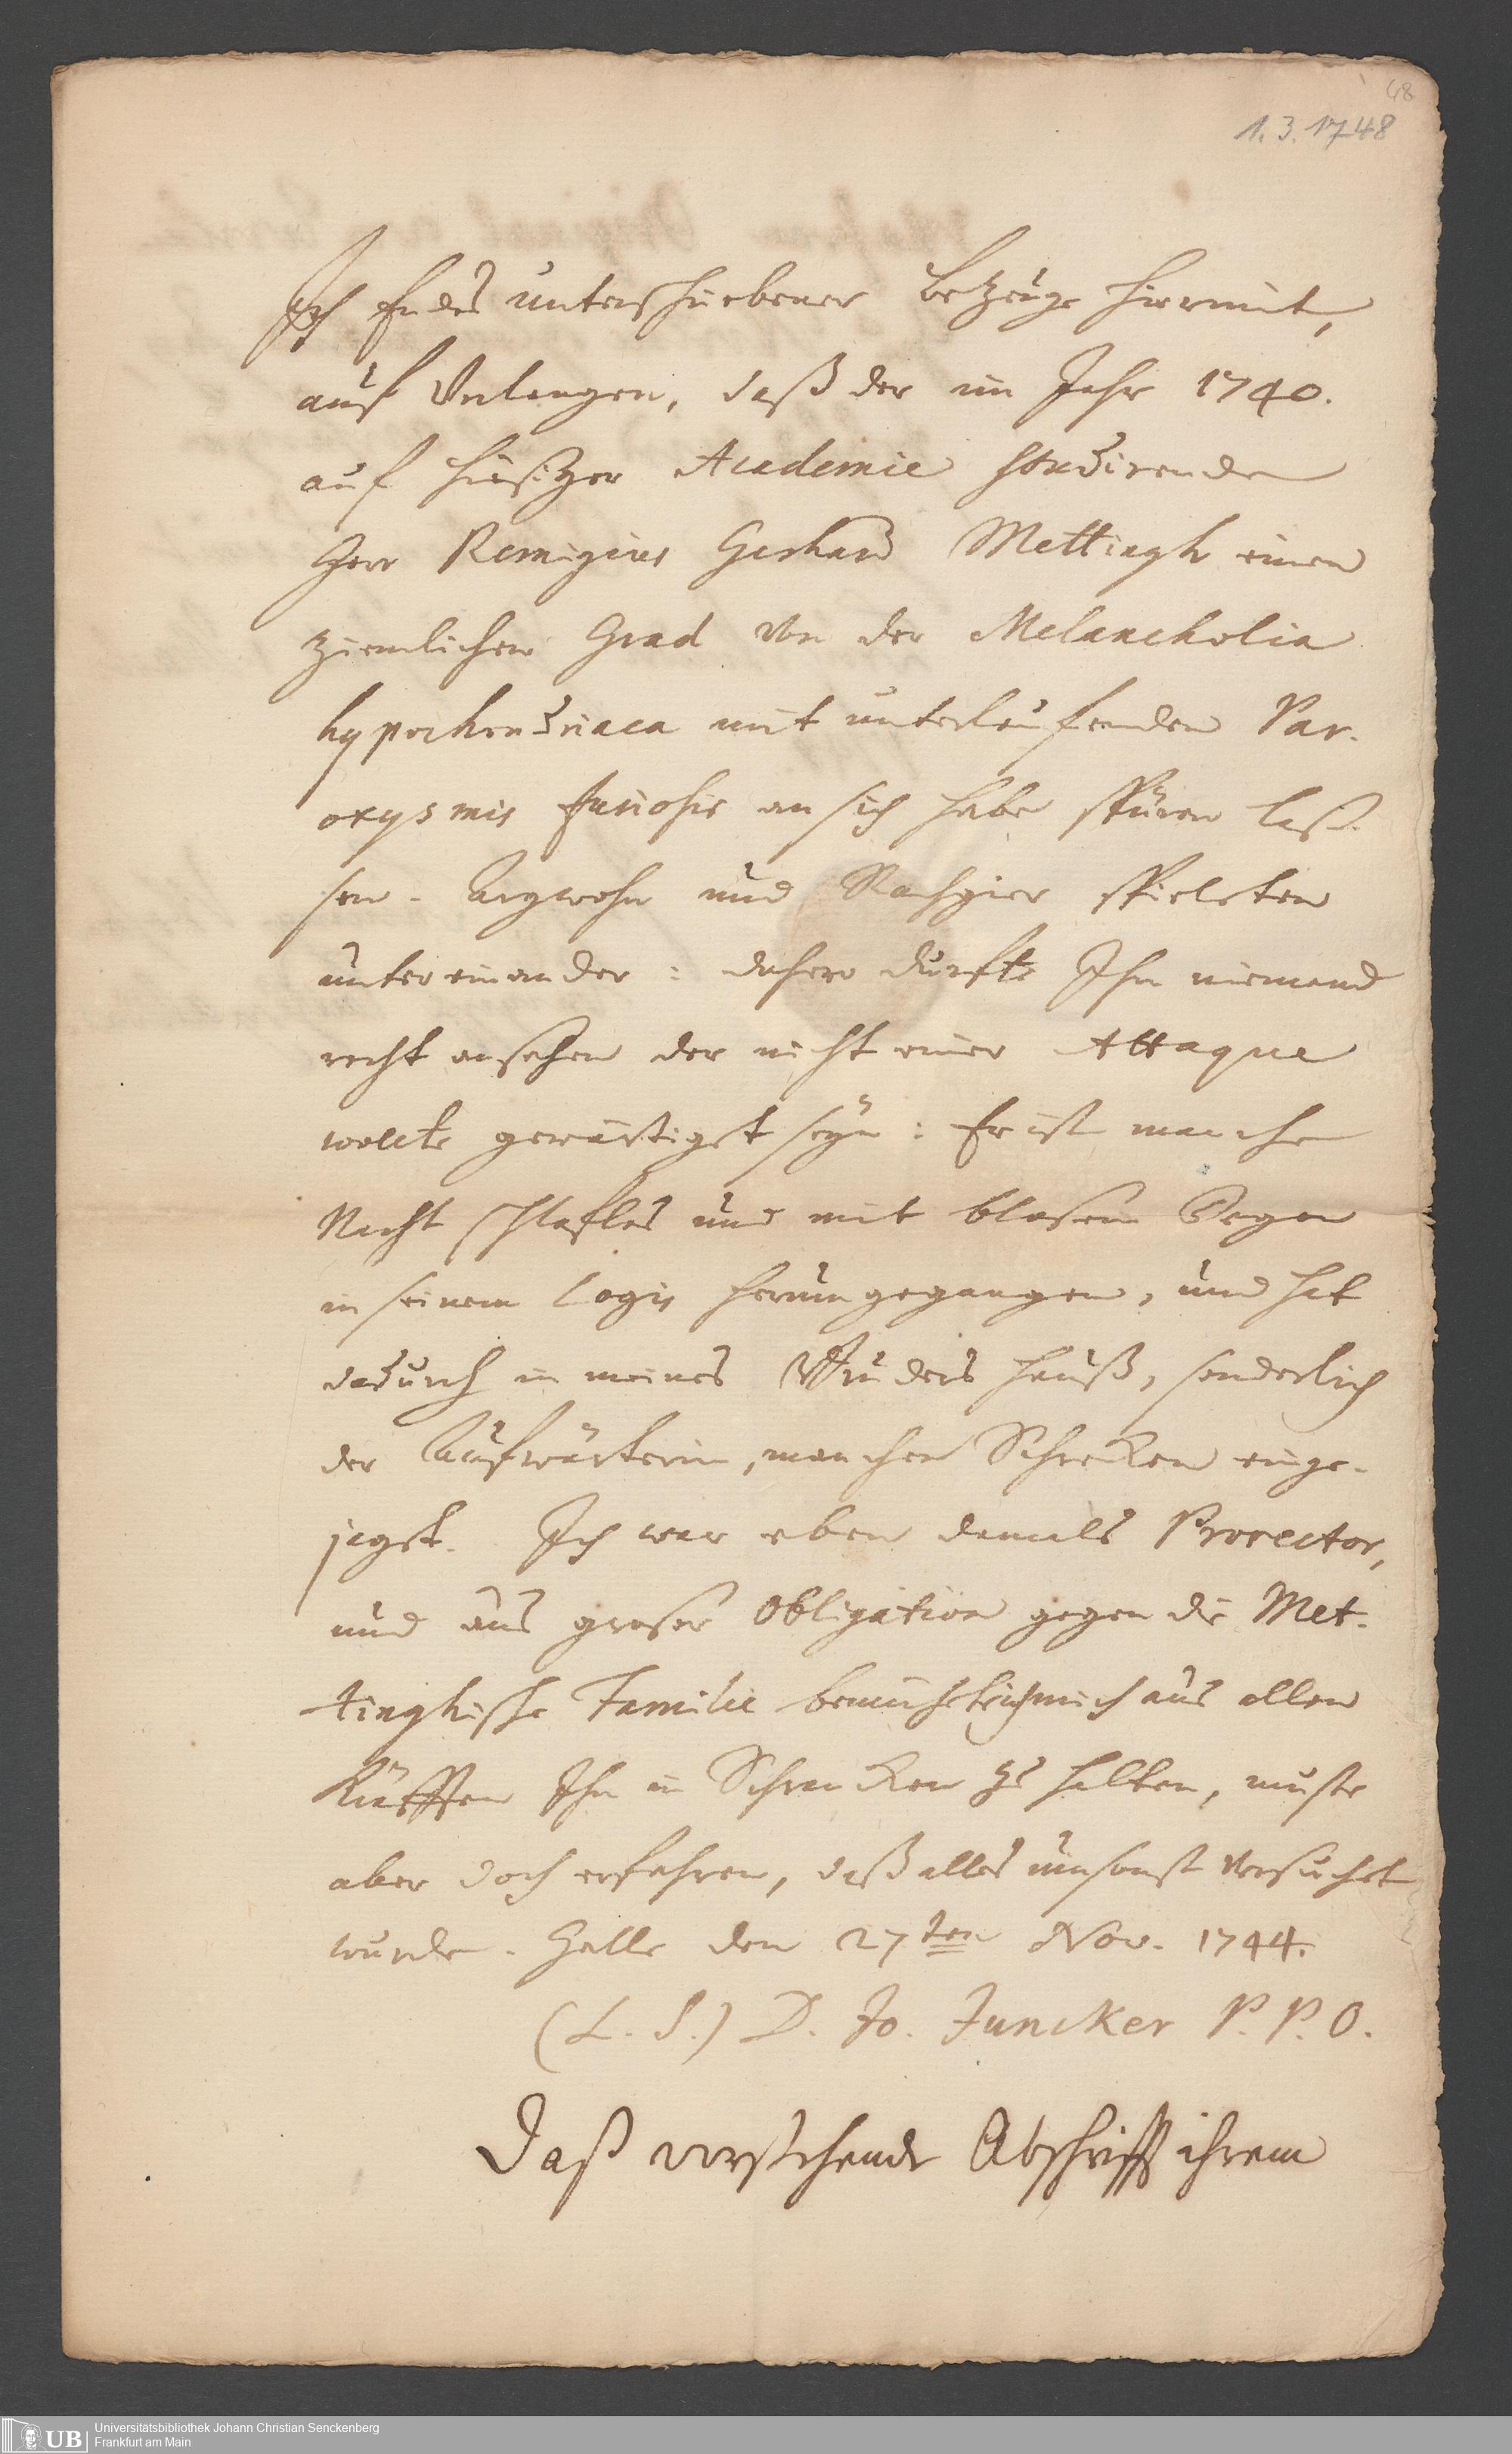 48
1. 3. 1748
Ich Endes unterschriebener bezeuge hiermit,
auf Verlangen, daß der im Jahr 1740.
auf hiesiger Academie studirende
Herr Remigius Gerhard Mettingh einen
ziemlichen Grad von der Melancholia
hypochondriaca mit unterlaufenden Par-
oxysmis furiosis an sich habe spüren laß-
sen. Argwohn und Rachgier spielten
untereinander: dahero durfte Ihn niemand
recht ansehen der nicht einer Attaque
wolte gewärtiget seyn: Er ist manche
Nacht schlaflos und mit blosem Degen
in seinem Logis herumgegangen, und hat
dadurch in meines Bruders Hauß, sonderlich
der Aufwärterin, manchen Schrecken einge-
jagt. Ich war eben damals Prorector,
und aus groser Obligation gegen die Met-
tinghische Familie bemühete ich mich aus allen
Kräfften Ihn in Schrancken zu halten, muste
aber doch erfahren, daß alles umsonst versuchet
wurde. Halle den 27ten Nov. 1744.
(L. S.) D. Jo. Juncker P. P. O.
Daß vorstehende Abschrifft ihrem
UB Universitätsbibliothek Johann Christian Senckenberg
Frankfurt am Main